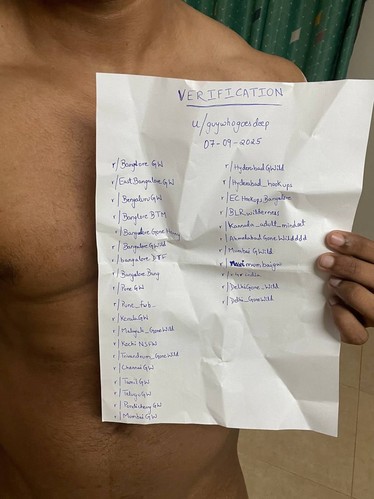 VERIFICATION
u/guywhogoesdeep
07-09-2025
r/Bangalore GW
r/East Bangalore GW
r/Bengaluru GW
r/Banglore BTM
r/Bangalore Gone
r/Bangalore GWild
r/bangalore DTF
r/Bangalore Bang
r/Pune GW
r/Pune_fwb_
r/Kerala GW
r/Malayali_GoneWild
r/Kochi NSFW
r/Trivandrum_GoneWild
r/Chennai GW
r/Tamil GW
r/Telugu GW
r/Pondicherry GW
r/Mumbai GW
r/Hyderabad GWild
r/Hyderabad_hookups
r/EC Hookups_Bangalore
r/BLR_wilderness
r/Kannada_adult_mindset
r/Ahmedabad Gone Wildddd
r/Mumbai GWild
r/Navimumbaigw
r/Delhi Gone_Wild
r/Delhi_GoneWild